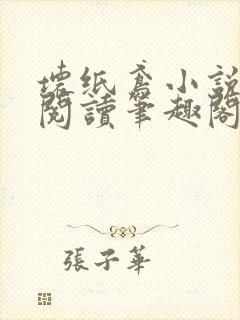 壞紙鳶小說
閱讀筆趣閣
張子華